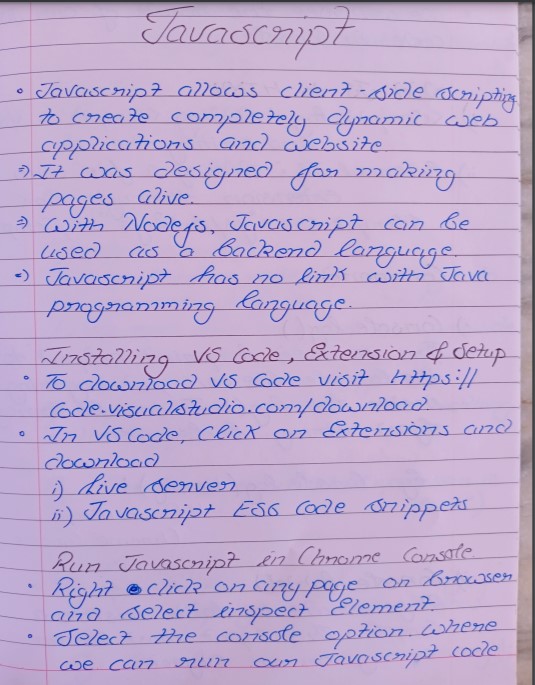 Javascript
• Javascript allows client-side scripting
to create completely dynamic web
applications and website
⇒ It was designed for making
pages alive.
⇒ With Nodejs, Javascript can be
used as a backend language.
⇒ Javascript has no link with Java
programming language.
Installing VS Code, Extension & Setup
• To download VS Code visit https://
code.visualstudio.com/download.
• In VS Code, Click on Extensions and
download
i) Live server
ii) Javascript ES6 Code snippets
Run Javascript in Chrome Console
• Right click on any page on browser
and select inspect Element.
• Select the console option where
we can run our Javascript code